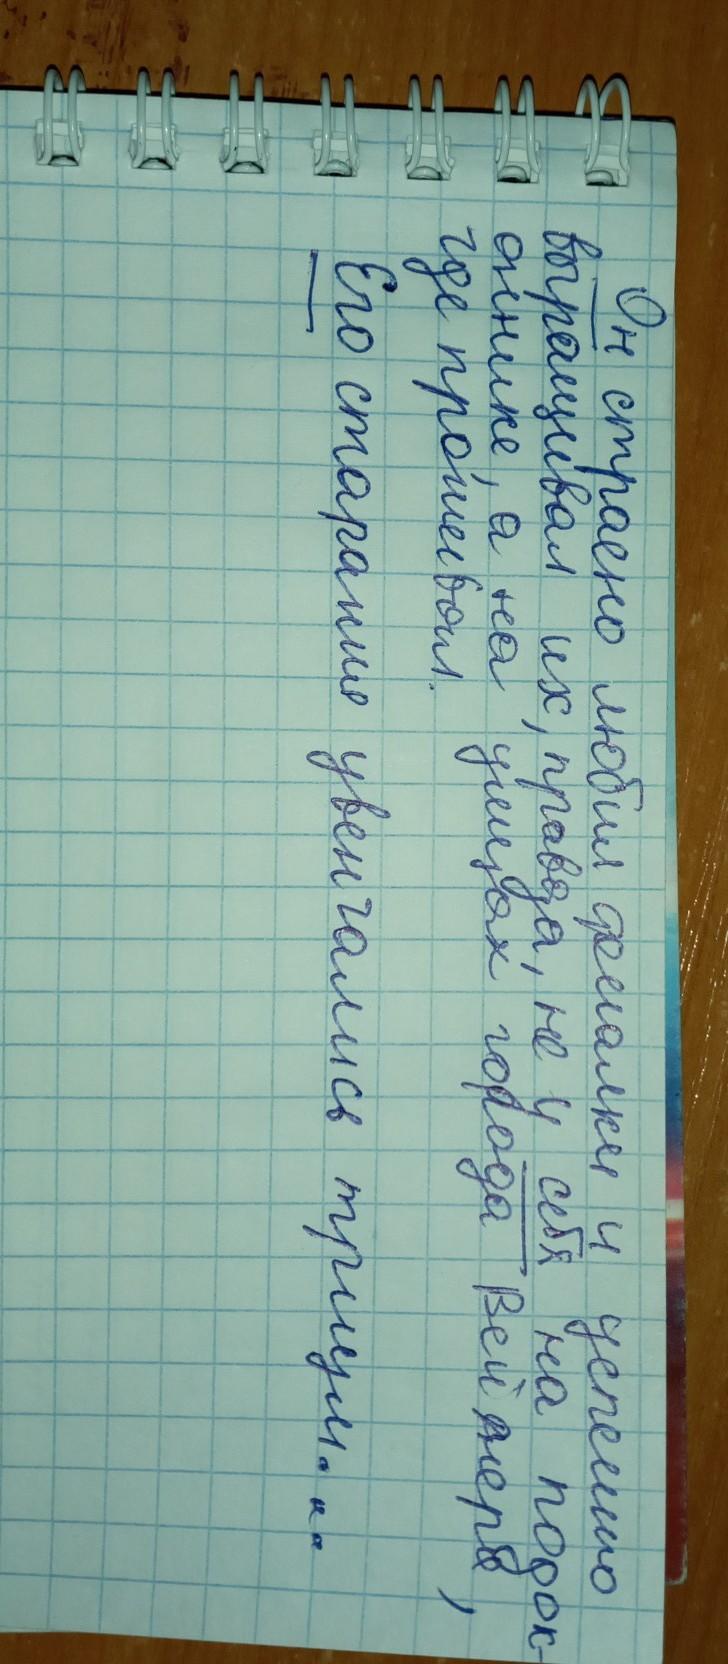 Он страсно любил фиалки и успешно
выращивал их, правда, не у себя на подок-
оннике, а на улицах города Веймера,
где проживал.
Его старания увенчались триум...